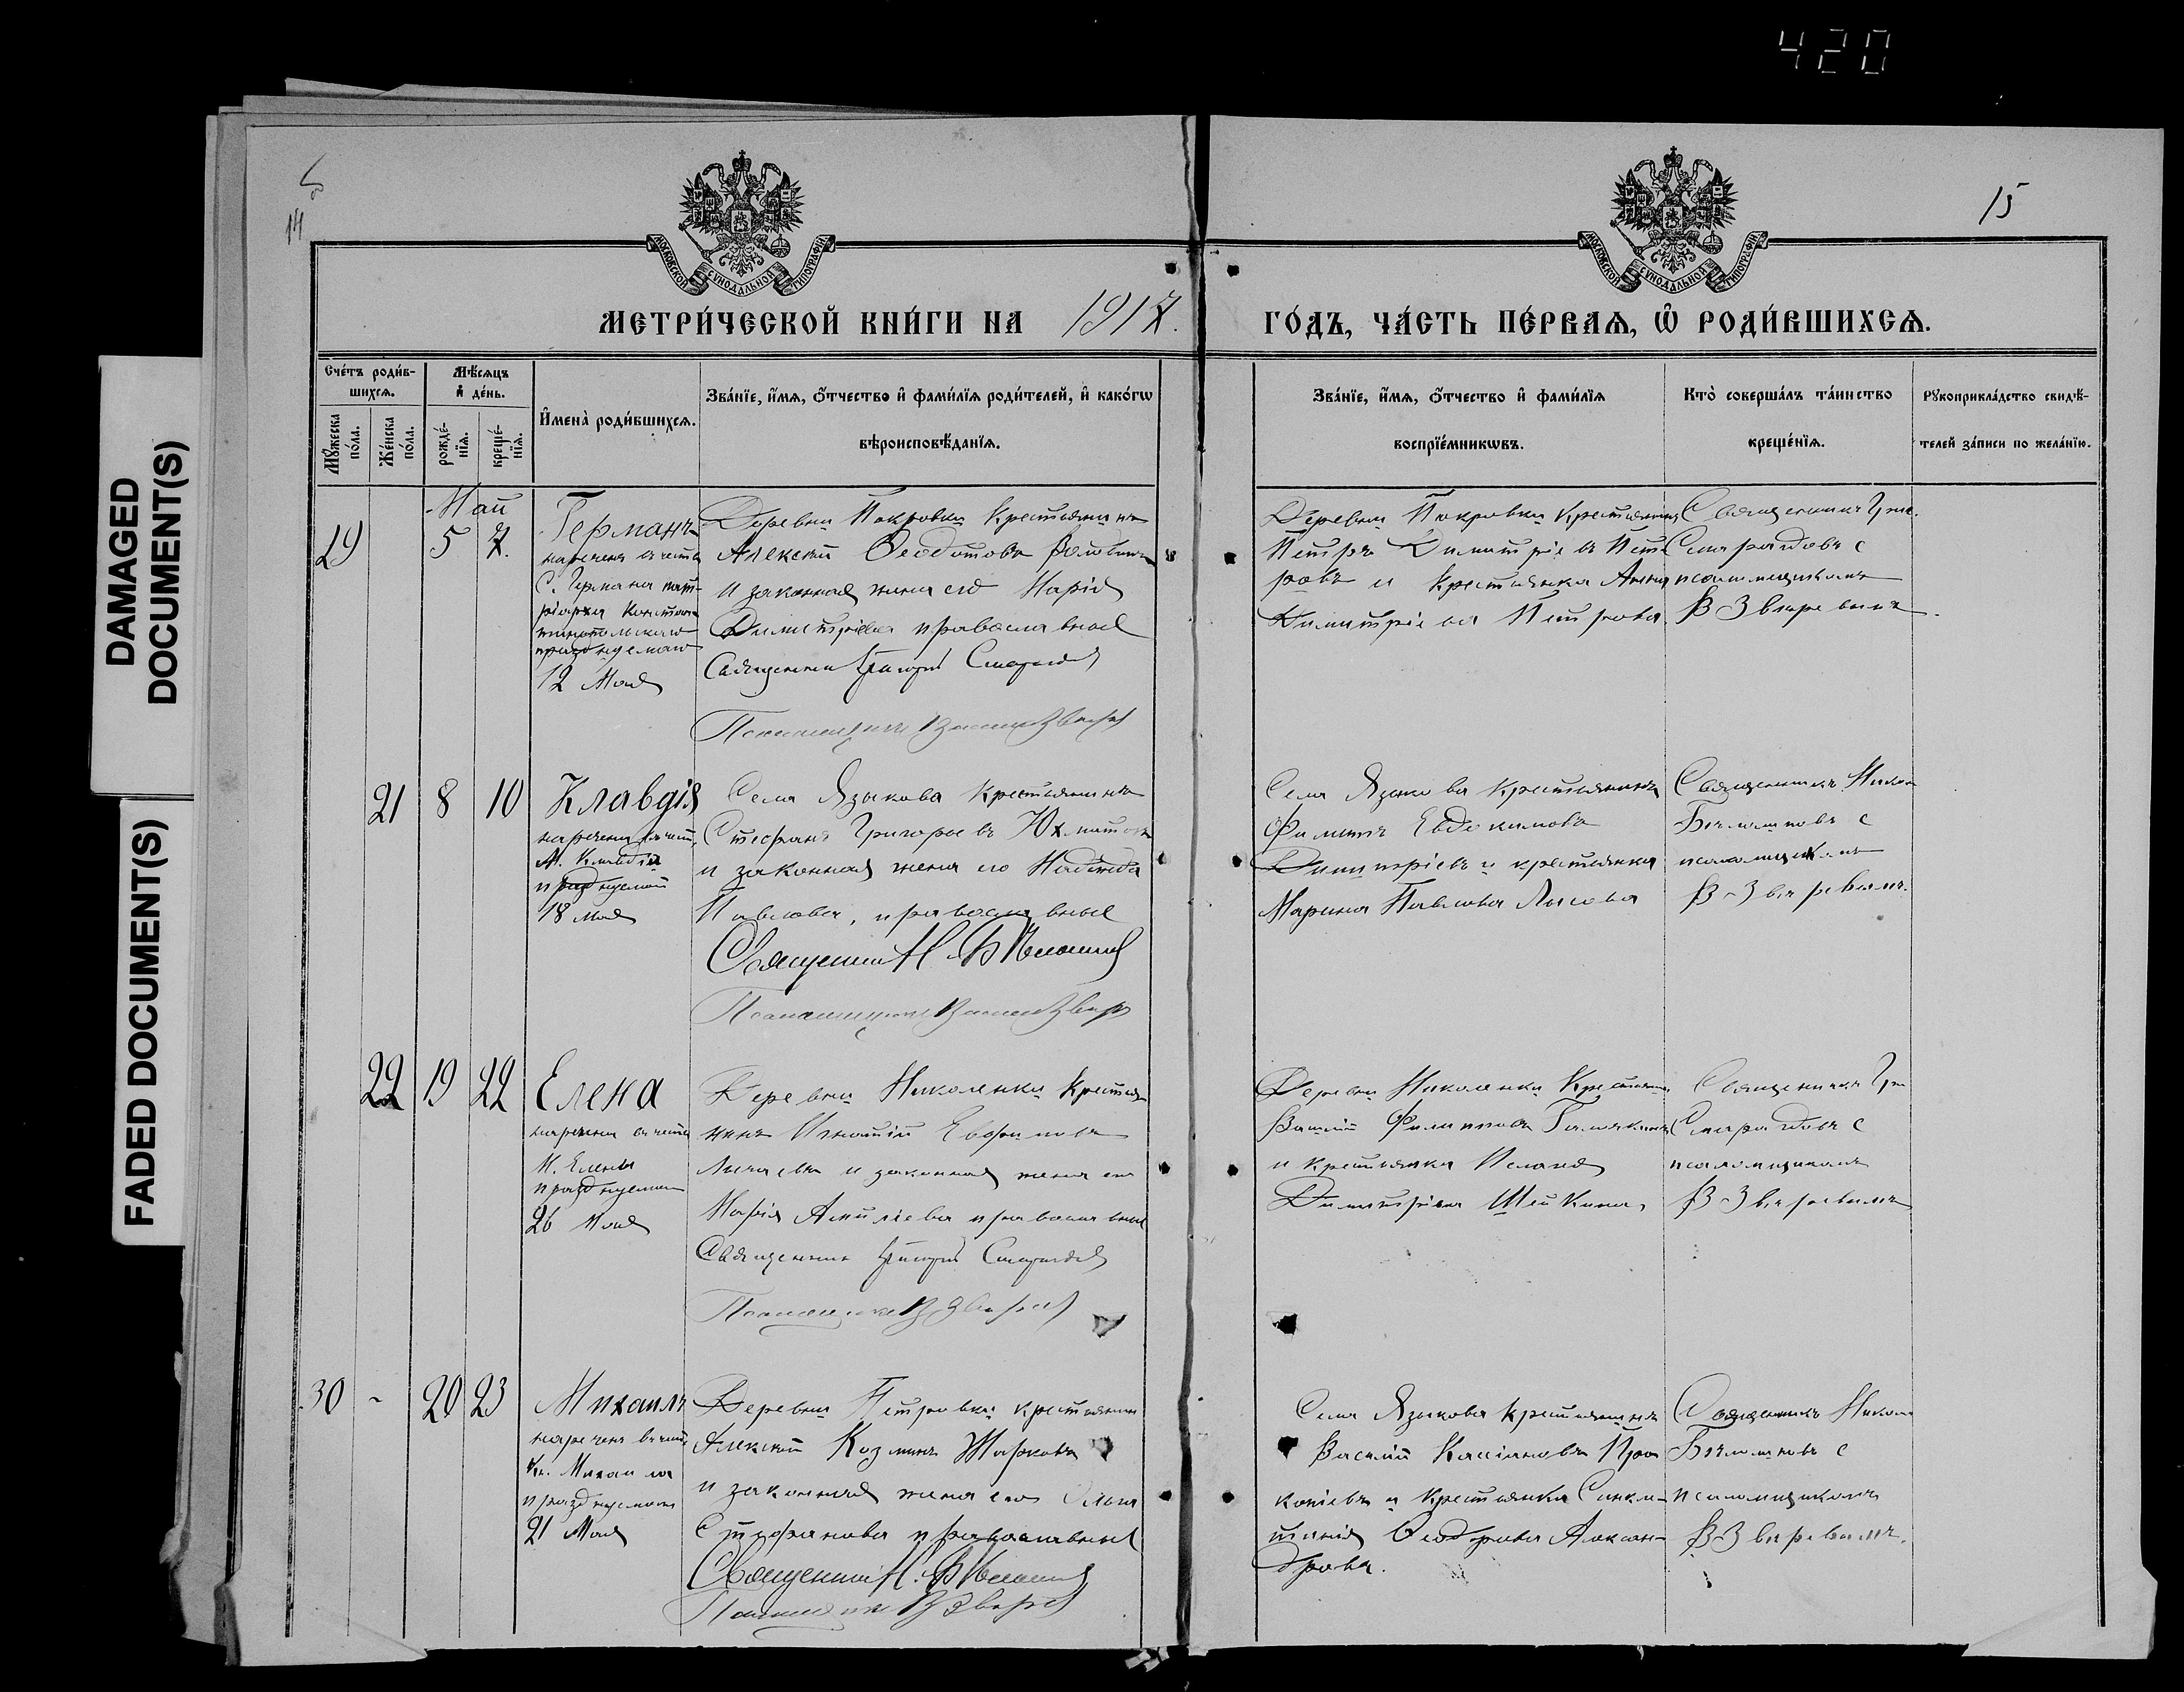 420
DAMAGED
DOCUMENT(S)
FADED DOCUMENT(S)
14
15
МОСКОВСКОЙ СѴНОДАЛЬНОЙ ТИПОГРАФІИ
МОСКОВСКОЙ СѴНОДАЛЬНОЙ ТИПОГРАФІИ
МЕТРИ́ЧЕСКОЙ КНИ́ГИ НА 1917.
ГО́ДЪ, ЧА́СТЬ ПЕ́РВАѦ, Ѽ РОДИ́ВШИХСѦ.
Сче́тъ роди́в-
шихсѧ.
Мꙋ́жеска по́ла.
Же́нска по́ла.
Мѣ́сѧцъ
и҆ де́нь.
рожде́-
нїѧ.
креще́-
нїѧ.
И҆мена̀ роди́вшихсѧ.
Зва́нїе, и҆́мѧ, ѻ҆́тчество и҆ фами́лїѧ роди́телей, и҆ како́гѡ
вѣроисповѣ́данїѧ.
Зва́нїе, и҆́мѧ, ѻ҆́тчество и҆ фами́лїѧ
воспрїе́мникѡвъ.
Кто̀ соверша́лъ та́инство
креще́нїѧ.
Рꙋкоприкла́дство свидѣ́-
телей за́писи по жела́нїю.
Май
29
5
7.
Германъ
нареченъ въ честь
С. Германа пат-
ріарха Констан-
тинопольскаго
празднуемаго
12 Мая
Деревни Покровки Крестьянинъ
Алексѣй Ѳеодотовъ
и законная жена его Марія
Димитріева православные
Священникъ Григорій Смарагдовъ
Псаломщикъ Звѣревъ
Деревни Покровки Крестьянинъ
Петръ Димитріевъ Пет-
ровъ и Крестьянка Анна
Димитріева Петрова.
Священникъ Григ.
Смарагдовъ с
псаломщикомъ
В Звѣревымъ.
21
8
10
Клавдія
наречена въ честь
М. Клавдіи
празднуемой
18 мая
Села Языкова Крестьянинъ
Стефанъ Григорьевъ
и законная жена его Надежда
Павлова, православные
Священникъ Н.
Псаломщикъ Звѣревъ
Села Языкова Крестьянинъ
Филиппъ Евдокимовъ
Димитріевъ и крестьянка
Марина Павлова Лисова
Священникъ Никол
с
псаломщикомъ
В Звѣревымъ.
22
19
22
Елена
наречена въ честь
М. Елены
празднуемой
26 Мая
Деревни Николенки Крестья-
нинъ Игнатій
и законная жена его
Марія православные
Священникъ Григорій Смарагдовъ
Псаломщикъ В Звѣревъ
Деревни Николенки Крестьянинъ
Филипповъ
и Крестьянка
Димитріева Шейкина,
Священникъ Гри
Смарагдовъ с
псаломщикомъ
В Звѣревымъ
30
-
20
23
Михаилъ
нареченъ въ честь
Кн. Михаила
празднуемаго
21 Мая
Деревни Петровки крестьянинъ
Алексѣй Козминъ Жарковъ
и законная жена его Ольга
Стефанова православные
Священникъ Н.
Псаломщикъ В Звѣревъ
Села Языкова Крестьянинъ
Василій Кассіановъ Про
копіевъ и Крестьянка Синкли-
тикія Ѳеодорова Алексан-
дрова.
Священникъ Никол
с
псаломщикомъ
В Звѣревымъ.